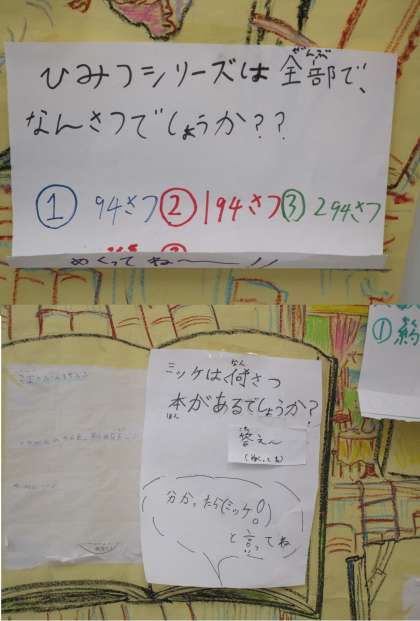 ひみつシリーズは全部で、
ぜんぶ
なんさつでしょうか??
① 94さつ ② 194さつ ③ 294さつ
めくってね〜!!
① 約
ミッケは、何さつ
なん
本があるでしょうか?
ほん
答えへ
(めくってね)
分かったら(ミッケ!
と言ってね